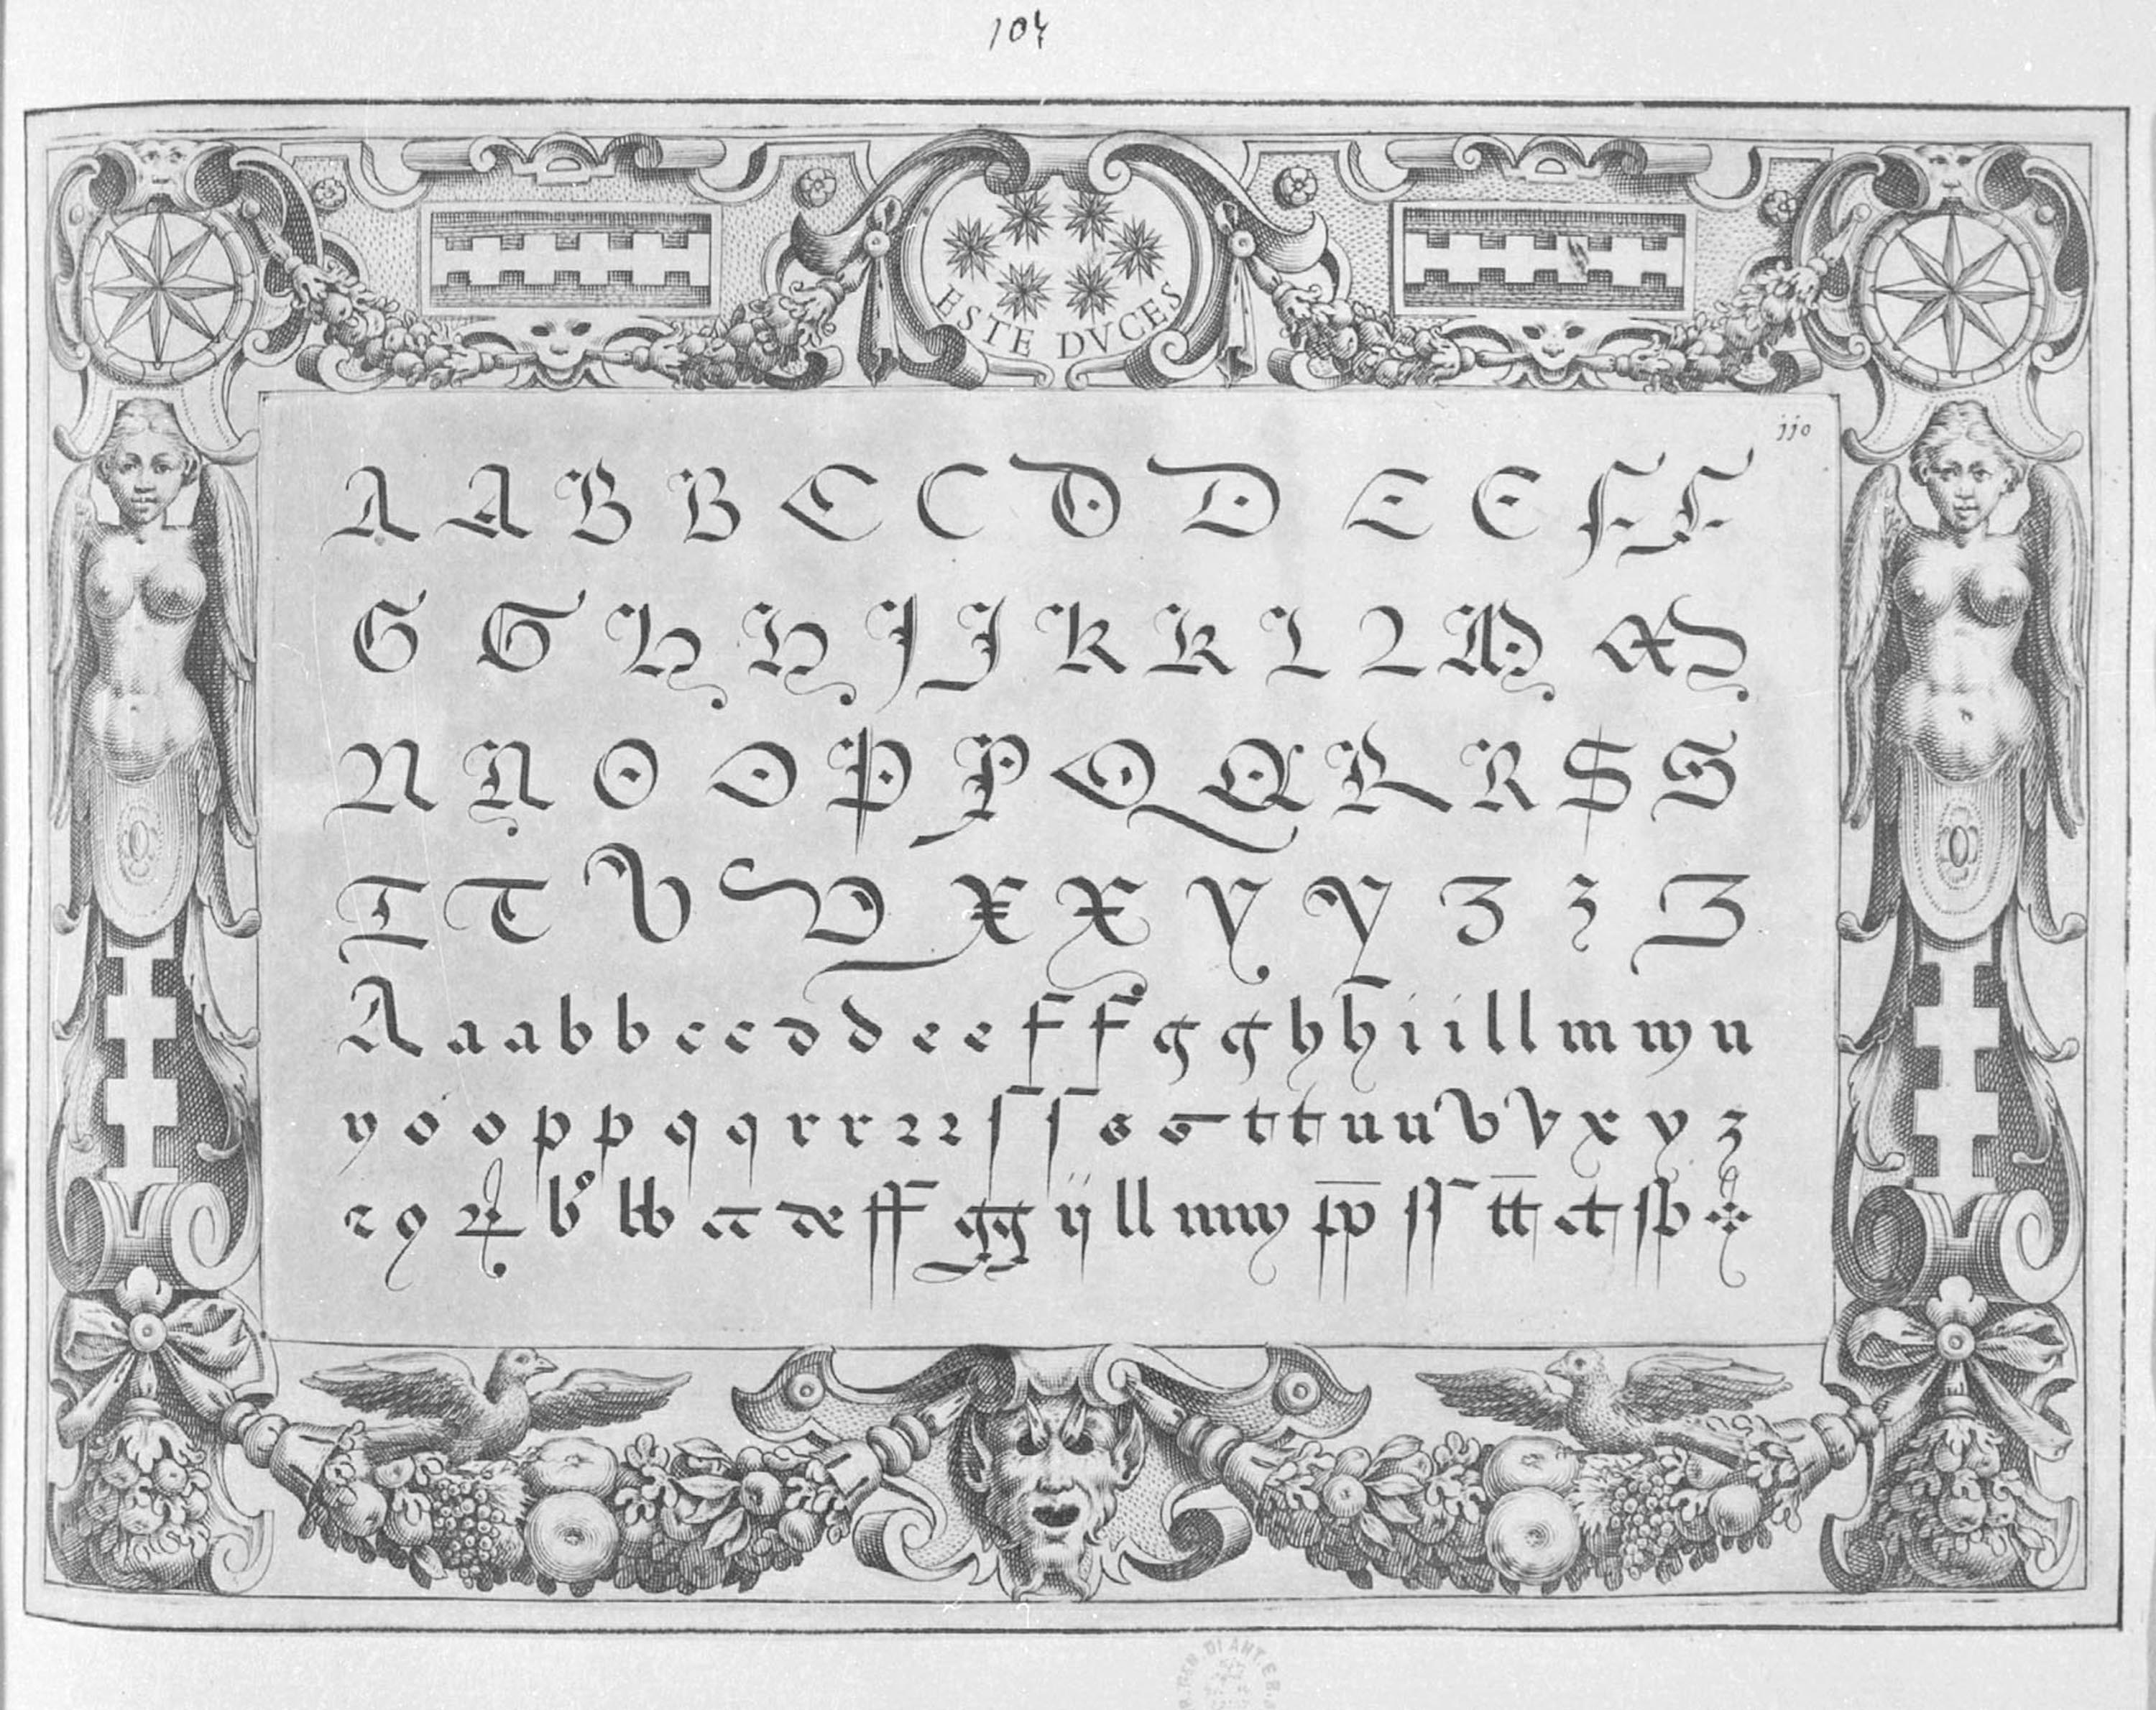 104
ESTE DVCES
jjo
A A B B C C D D E E F F
G G H H J J K K L L M M
N N O O P P Q Q R R S S
T T V V X X Y Y Z Z Z
A a a b b c c d d e e f f g g h h i i l l m m n
n o o p p q q r r ꝛ ꝛ ſ ſ s s t t u u v v x y z
ll ſſ